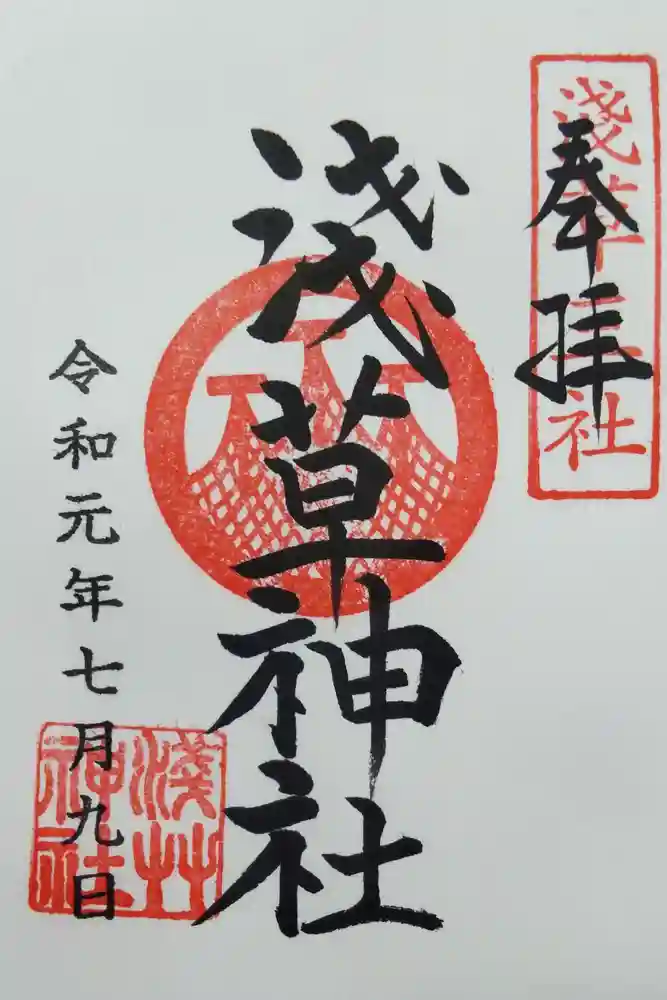 奉拝
淺草三社
淺草神社
令和元年七月九日
淺草神社